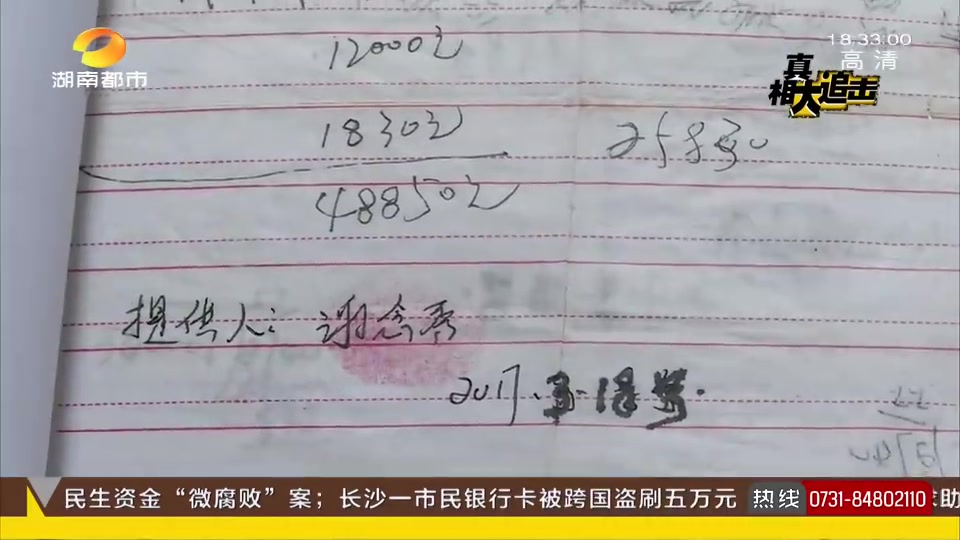 湖南都市
18:33:00
高清
真相大追击
12000元
1830元
48850元
提供人：谢念秀
2017.
民生资金“微腐败”案；长沙一市民银行卡被跨国盗刷五万元 热线 0731-84802110 求助